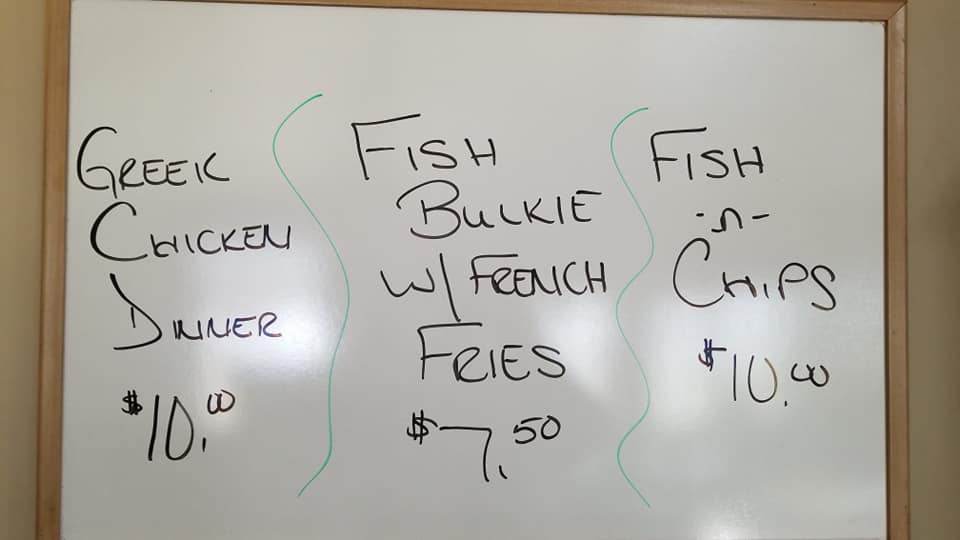 GREEK
CHICKEN
DINNER
$10.00
FISH
BULKIE
W/ FRENCH
FRIES
$7.50
FISH
-n-
CHIPS
$10.00